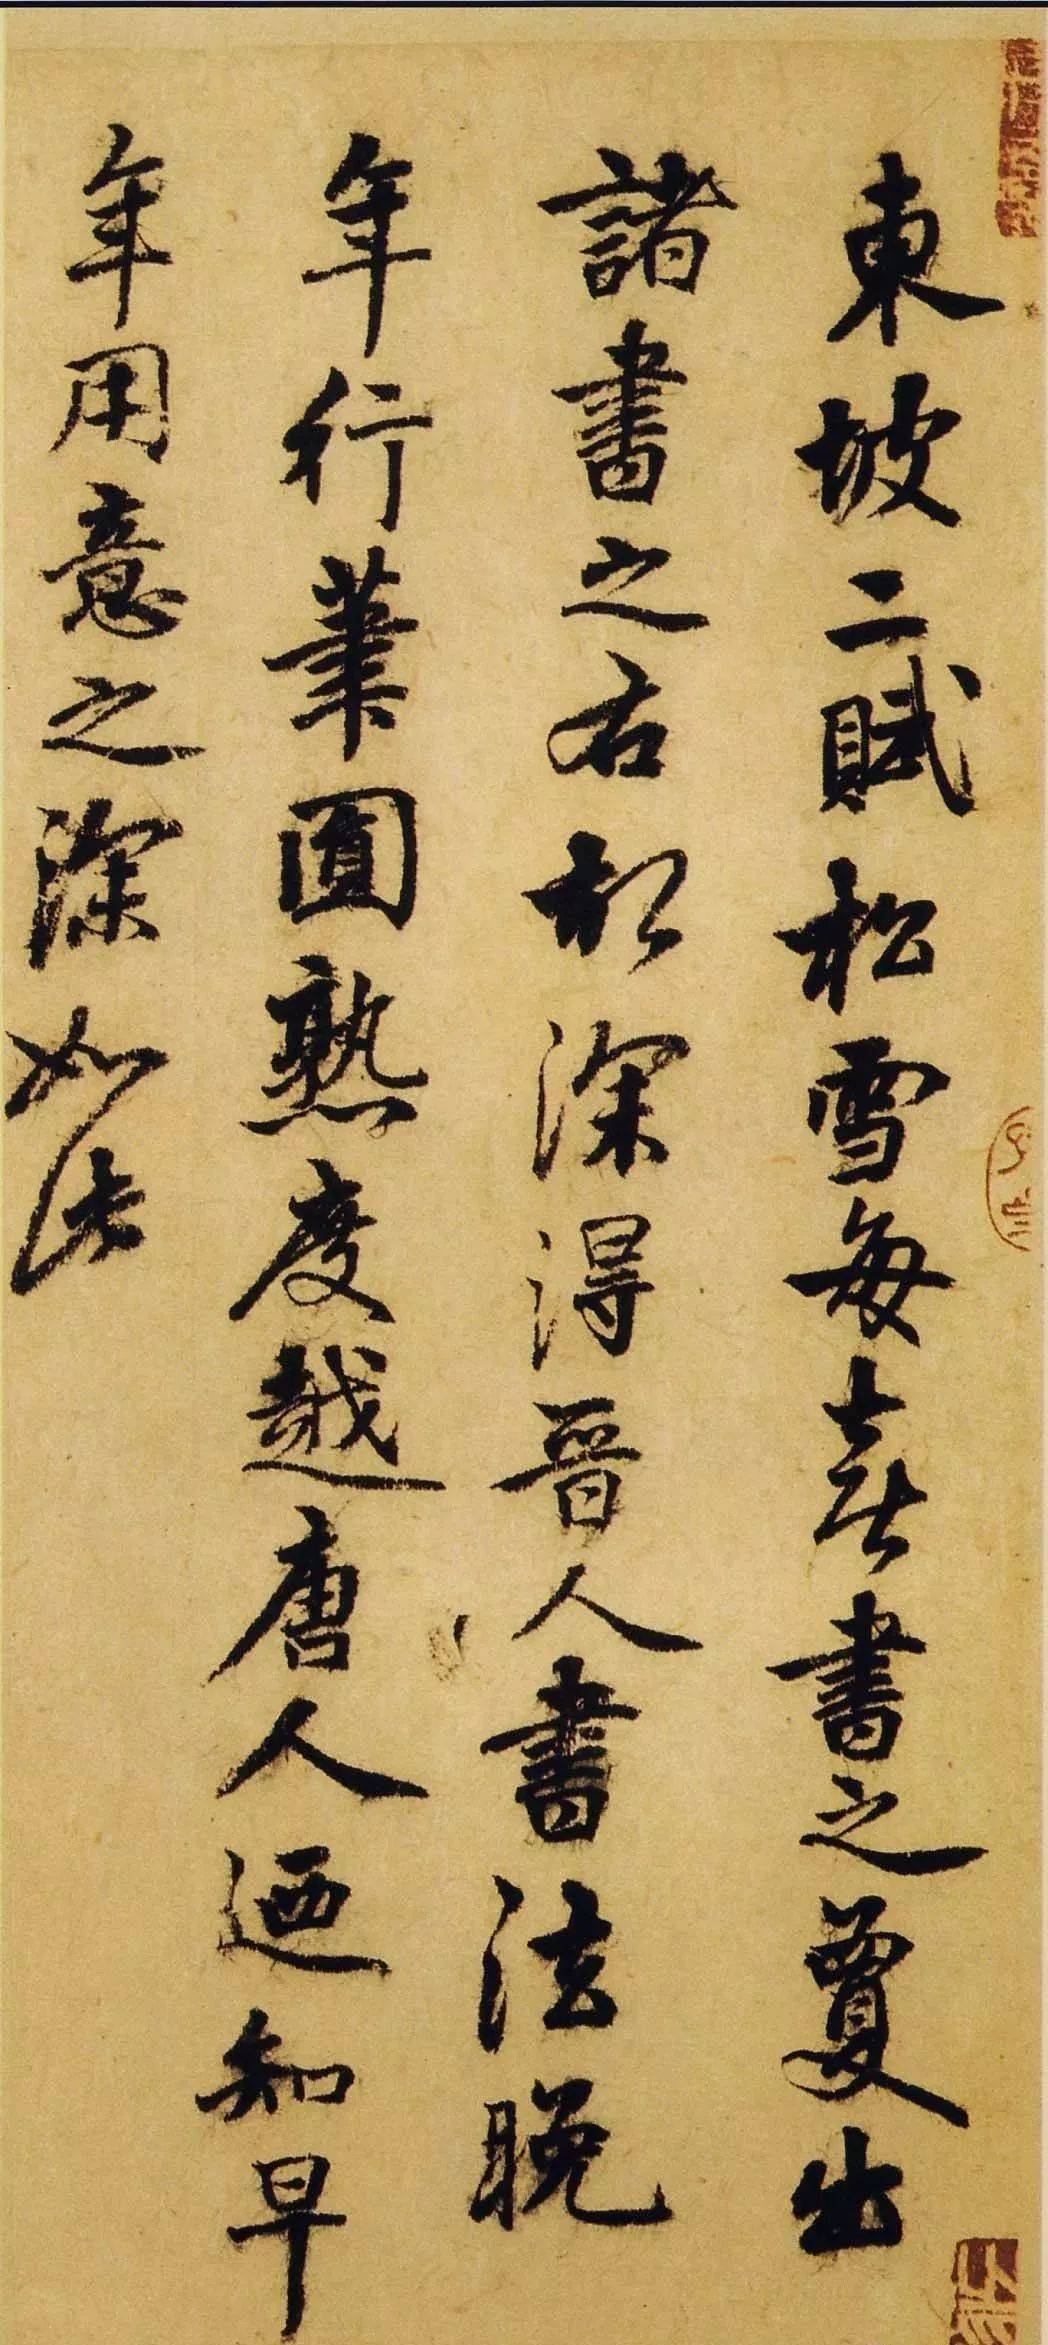 東坡二賦松雪每喜書之夐出
諸書之右於深得晉人書法晚
年行筆圓熟度越唐人迺知早
年用意之深如此